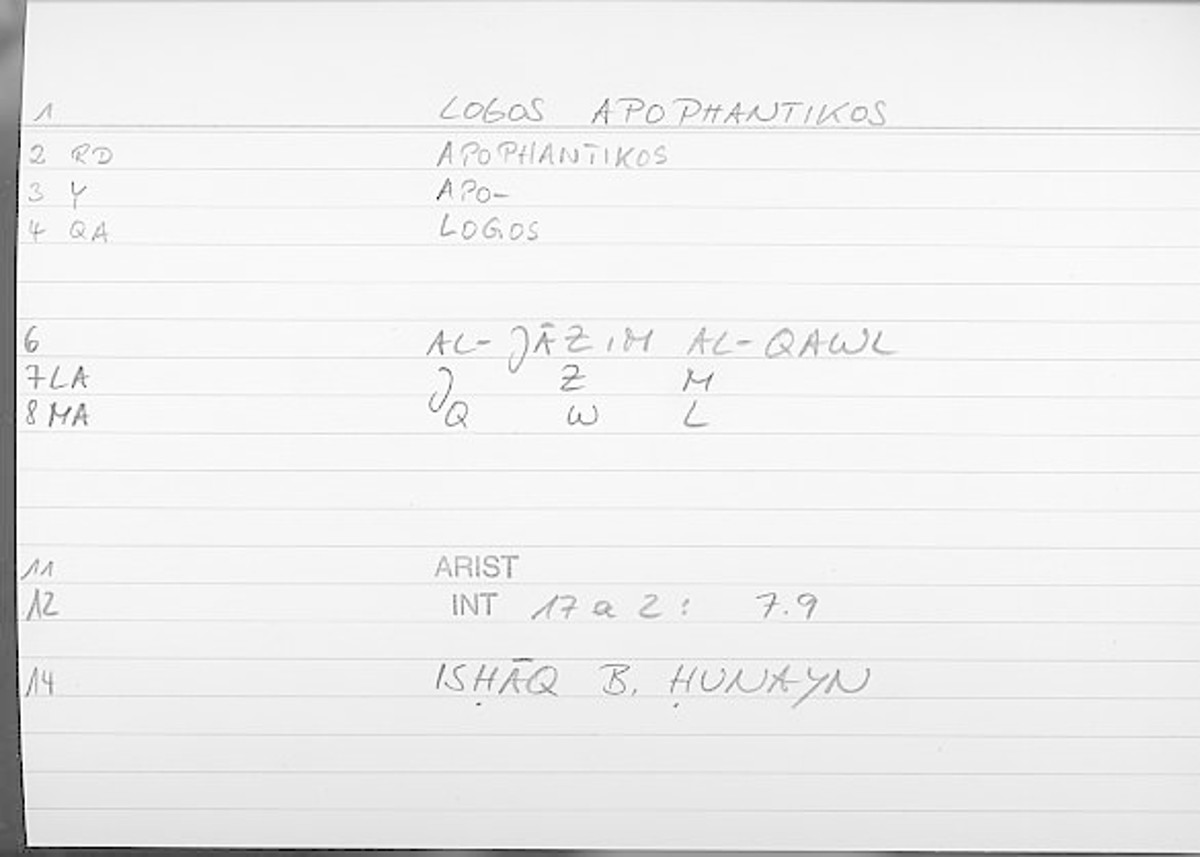 1 LOGOS APOPHANTIKOS
2 RD APOPHANTIKOS
3 Y APO-
4 QA LOGOS
6 AL-JĀZIM AL-QAWL
7 LA J Z M
8 MA Q W L
11 ARIST
12 INT 17 a 2 : 7.9
14 ISḤĀQ B. ḤUNAYN